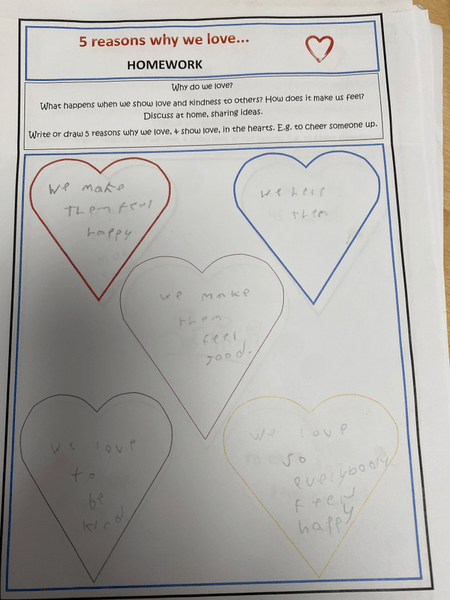 5 reasons why we love...
HOMEWORK
Why do we love?
What happens when we show love and kindness to others? How does it make us feel?
Discuss at home, sharing ideas.
Write or draw 5 reasons why we love, & show love, in the hearts. E.g. to cheer someone up.
we make
them feel
happy
we
them
we make
them
feel
good.
we love
to
be
kind
we love
so
everybody
feels
happy